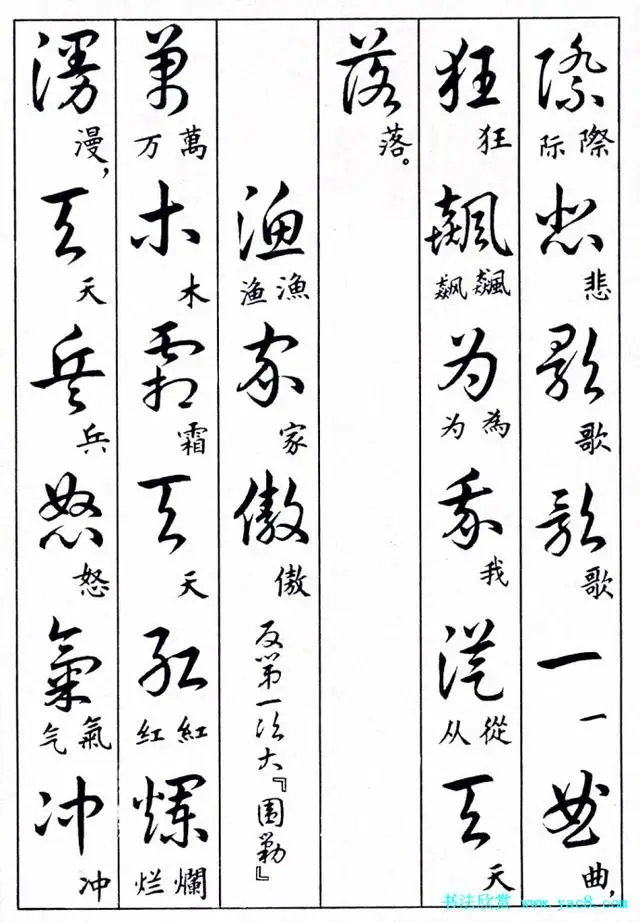 際 际際 悲 悲 歌 歌 歌 歌 一 一 曲 曲，
狂 狂 飆 飙飆 为 为為 我 我 從 从從 天 天
落 落。
渔 渔漁 家 家 傲 傲 反第一次大『围勦』
萬 万萬 木 木 霜 霜 天 天 红 红紅 爛 烂爛
漫 漫， 天 天 兵 兵 怒 怒 氣 气氣 冲 冲
书法欣赏 www.yac8.com